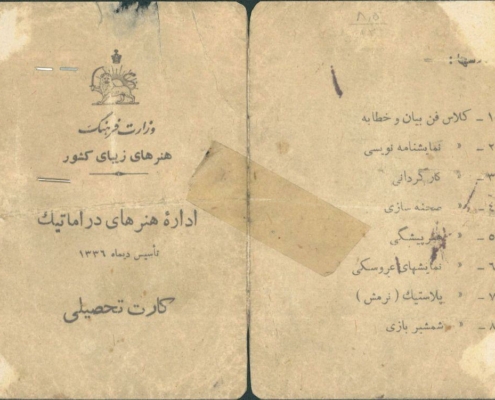 وزارت فرهنگ
هنرهای زیبای کشور
ادارهٔ هنرهای دراماتیك
تأسیس دیماه ۱۳۳۶
کارت تحصیلی
رسها :
۱ - کلاس فن بیان و خطابه
۲ - » نمایشنامه نویسی
۳ - » کارگردانی
۴ - » صحنه سازی
۵ - » هنرپیشگی
۶ - » نمایشهای عروسکی
۷ - » پلاستیك ( نرمش )
۸ - » شمشیر بازی